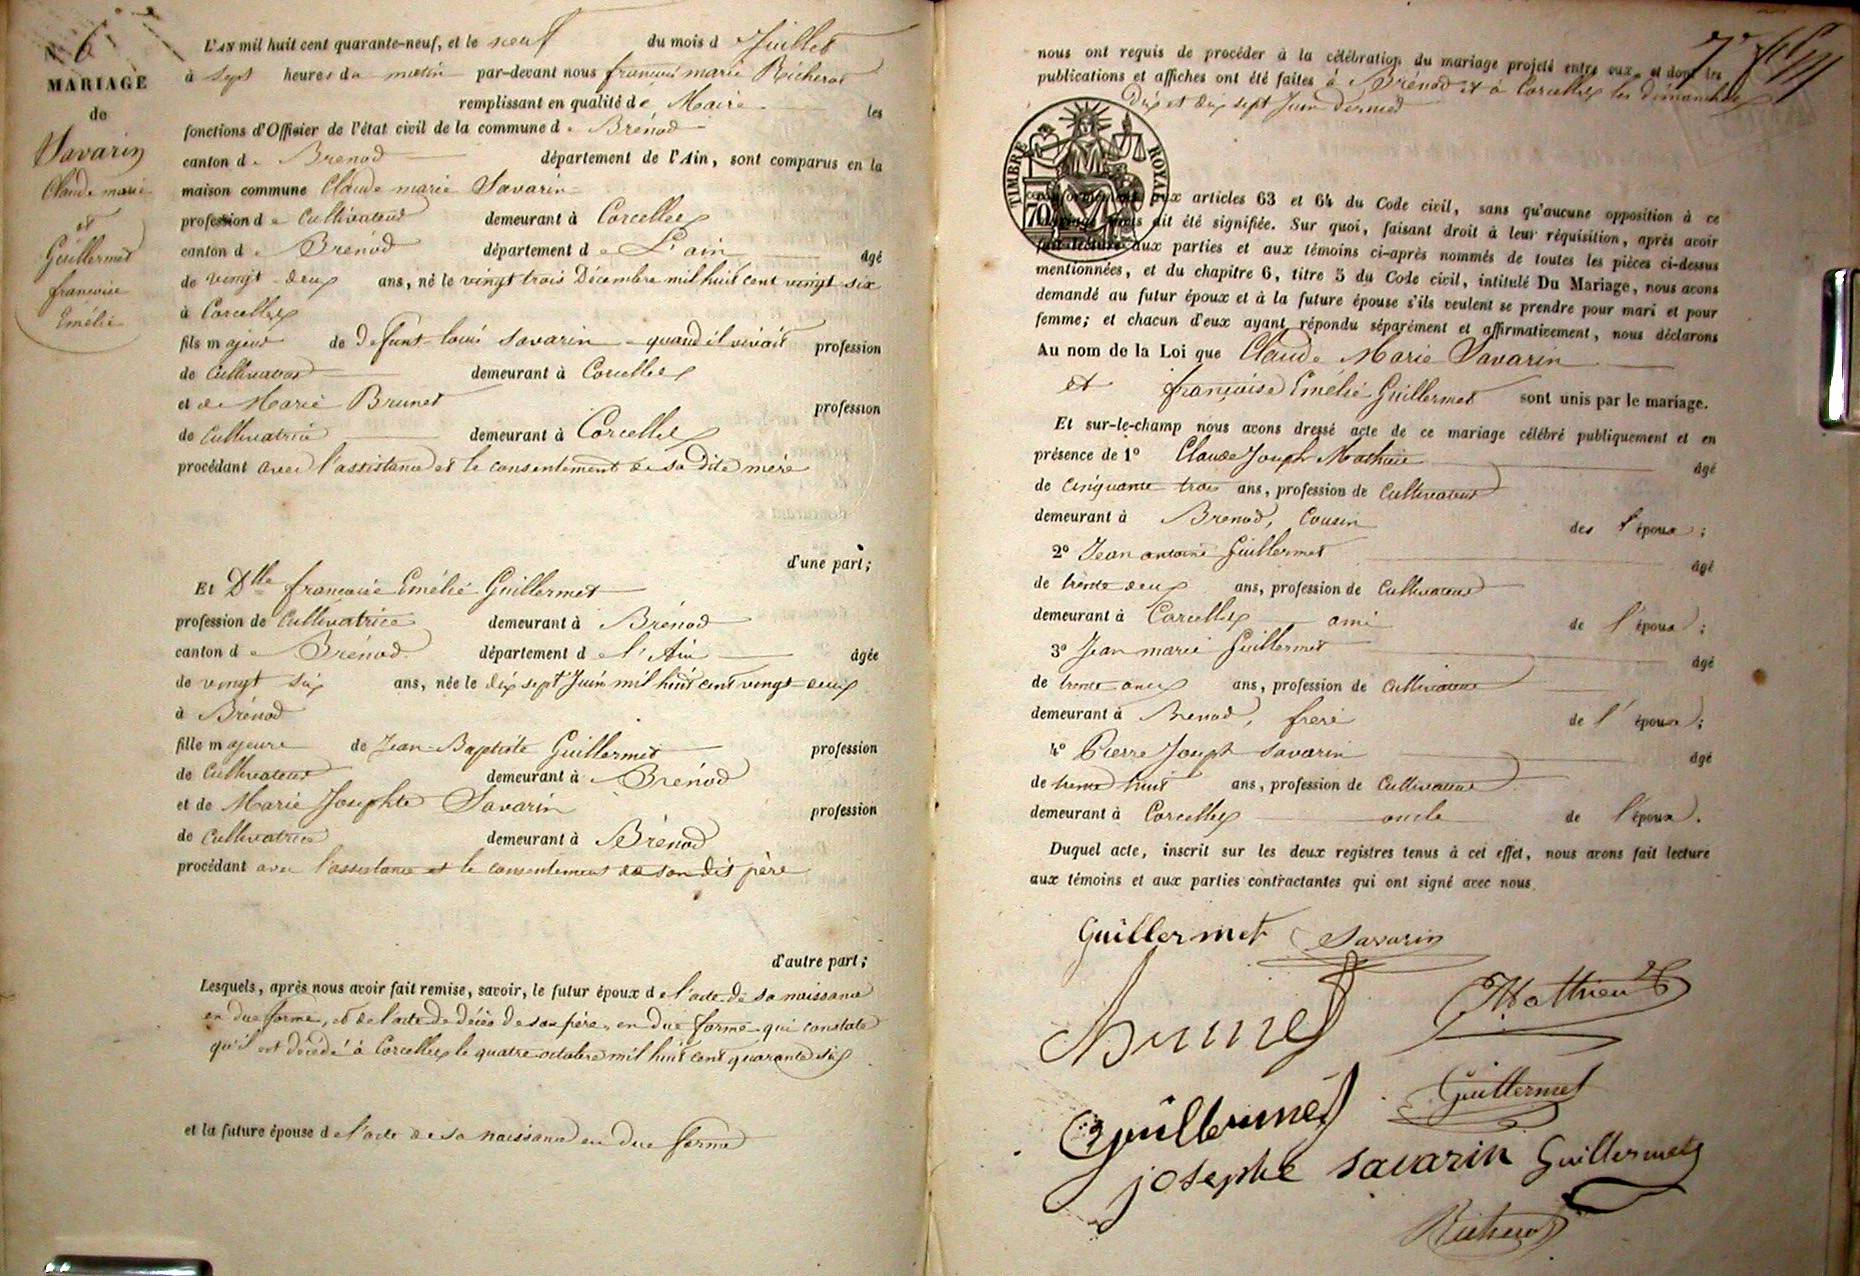 N° 6
MARIAGE
de
Savarin
Claude marie
et
Guillermet
françoise
Emélie
L'AN mil huit cent quarante-neuf, et le neuf du mois d Juillet
à sept heures du matin par-devant nous françois marie Richerot
remplissant en qualité de Maire les
fonctions d'Officier de l'état civil de la commune d e Brénod
canton d e Brenod département de l'Ain, sont comparus en la
maison commune Claude marie Savarin
profession d e Cultivateur demeurant à Corcelles
canton d e Brénod département d e L'ain âgé
de vingt-deux ans, né le vingt trois Décembre mil huit cent vingt six
à Corcelles
fils majeur de Défunt louis Savarin quand il vivait profession
de Cultivateur demeurant à Corcelles
et de Marie Brunet profession
de Cultivatrice demeurant à Corcelles
procédant avec l'assistance et le consentement de sa dite mère
d'une part;
Et Dlle françoise Emélie Guillermet
profession de Cultivatrice demeurant à Brénod
canton d e Brénod département d e l'Ain âgée
de vingt six ans, née le dix sept Juin mil huit cent vingt-deux
à Brénod
fille majeure de Jean-Baptiste Guillermet profession
de Cultivateur demeurant à Brénod
et de Marie Josephte Savarin profession
de Cultivatrice demeurant à Brénod
procédant avec l'assistance et le consentement de son dit père
d'autre part;
Lesquels, après nous avoir fait remise, savoir, le futur époux d e l'acte de sa naissance
en due forme, et de l'acte de décès de son père, en due forme qui constate
qu'il est décédé à Corcelles le quatre octobre mil huit cent quarante six
et la future épouse d e l'acte de sa naissance en due forme
nous ont requis de procéder à la célébration du mariage projeté entre eux, et dont les
publications et affiches ont été faites à Brénod et à Corcelles les dimanches
Dix et dix sept Juin dernier
TIMBRE ROYAL
70
conformément aux articles 63 et 64 du Code civil, sans qu'aucune opposition à ce
mariage nous ait été signifiée. Sur quoi, faisant droit à leur réquisition, après avoir
fait lecture aux parties et aux témoins ci-après nommés de toutes les pièces ci-dessus
mentionnées, et du chapitre 6, titre 5 du Code civil, intitulé Du Mariage, nous avons
demandé au futur époux et à la future épouse s'ils veulent se prendre pour mari et pour
femme; et chacun d'eux ayant répondu séparément et affirmativement, nous déclarons
Au nom de la Loi que Claude Marie Savarin
et françoise Emélie Guillermet sont unis par le mariage.
Et sur-le-champ nous avons dressé acte de ce mariage célébré publiquement et en
présence de 1° Claude Joseph Mathieu âgé
de cinquante trois ans, profession de Cultivateur
demeurant à Brenod, Cousin des l'époux;
2° Jean antoine Guillermet âgé
de trente deux ans, profession de Cultivateur
demeurant à Corcelles ami de l'époux;
3° Jean marie Guillermet âgé
de trente ans, profession de Cultivateur
demeurant à Brenod, frère de l'épouse;
4° Pierre Joseph Savarin âgé
de trente huit ans, profession de Cultivateur
demeurant à Corcelles oncle de l'époux.
Duquel acte, inscrit sur les deux registres tenus à cet effet, nous avons fait lecture
aux témoins et aux parties contractantes qui ont signé avec nous.
Guillermet Savarin
Brunet Mathieu
Guillermet Guillermet
josephe savarin Guillermet
Richerot